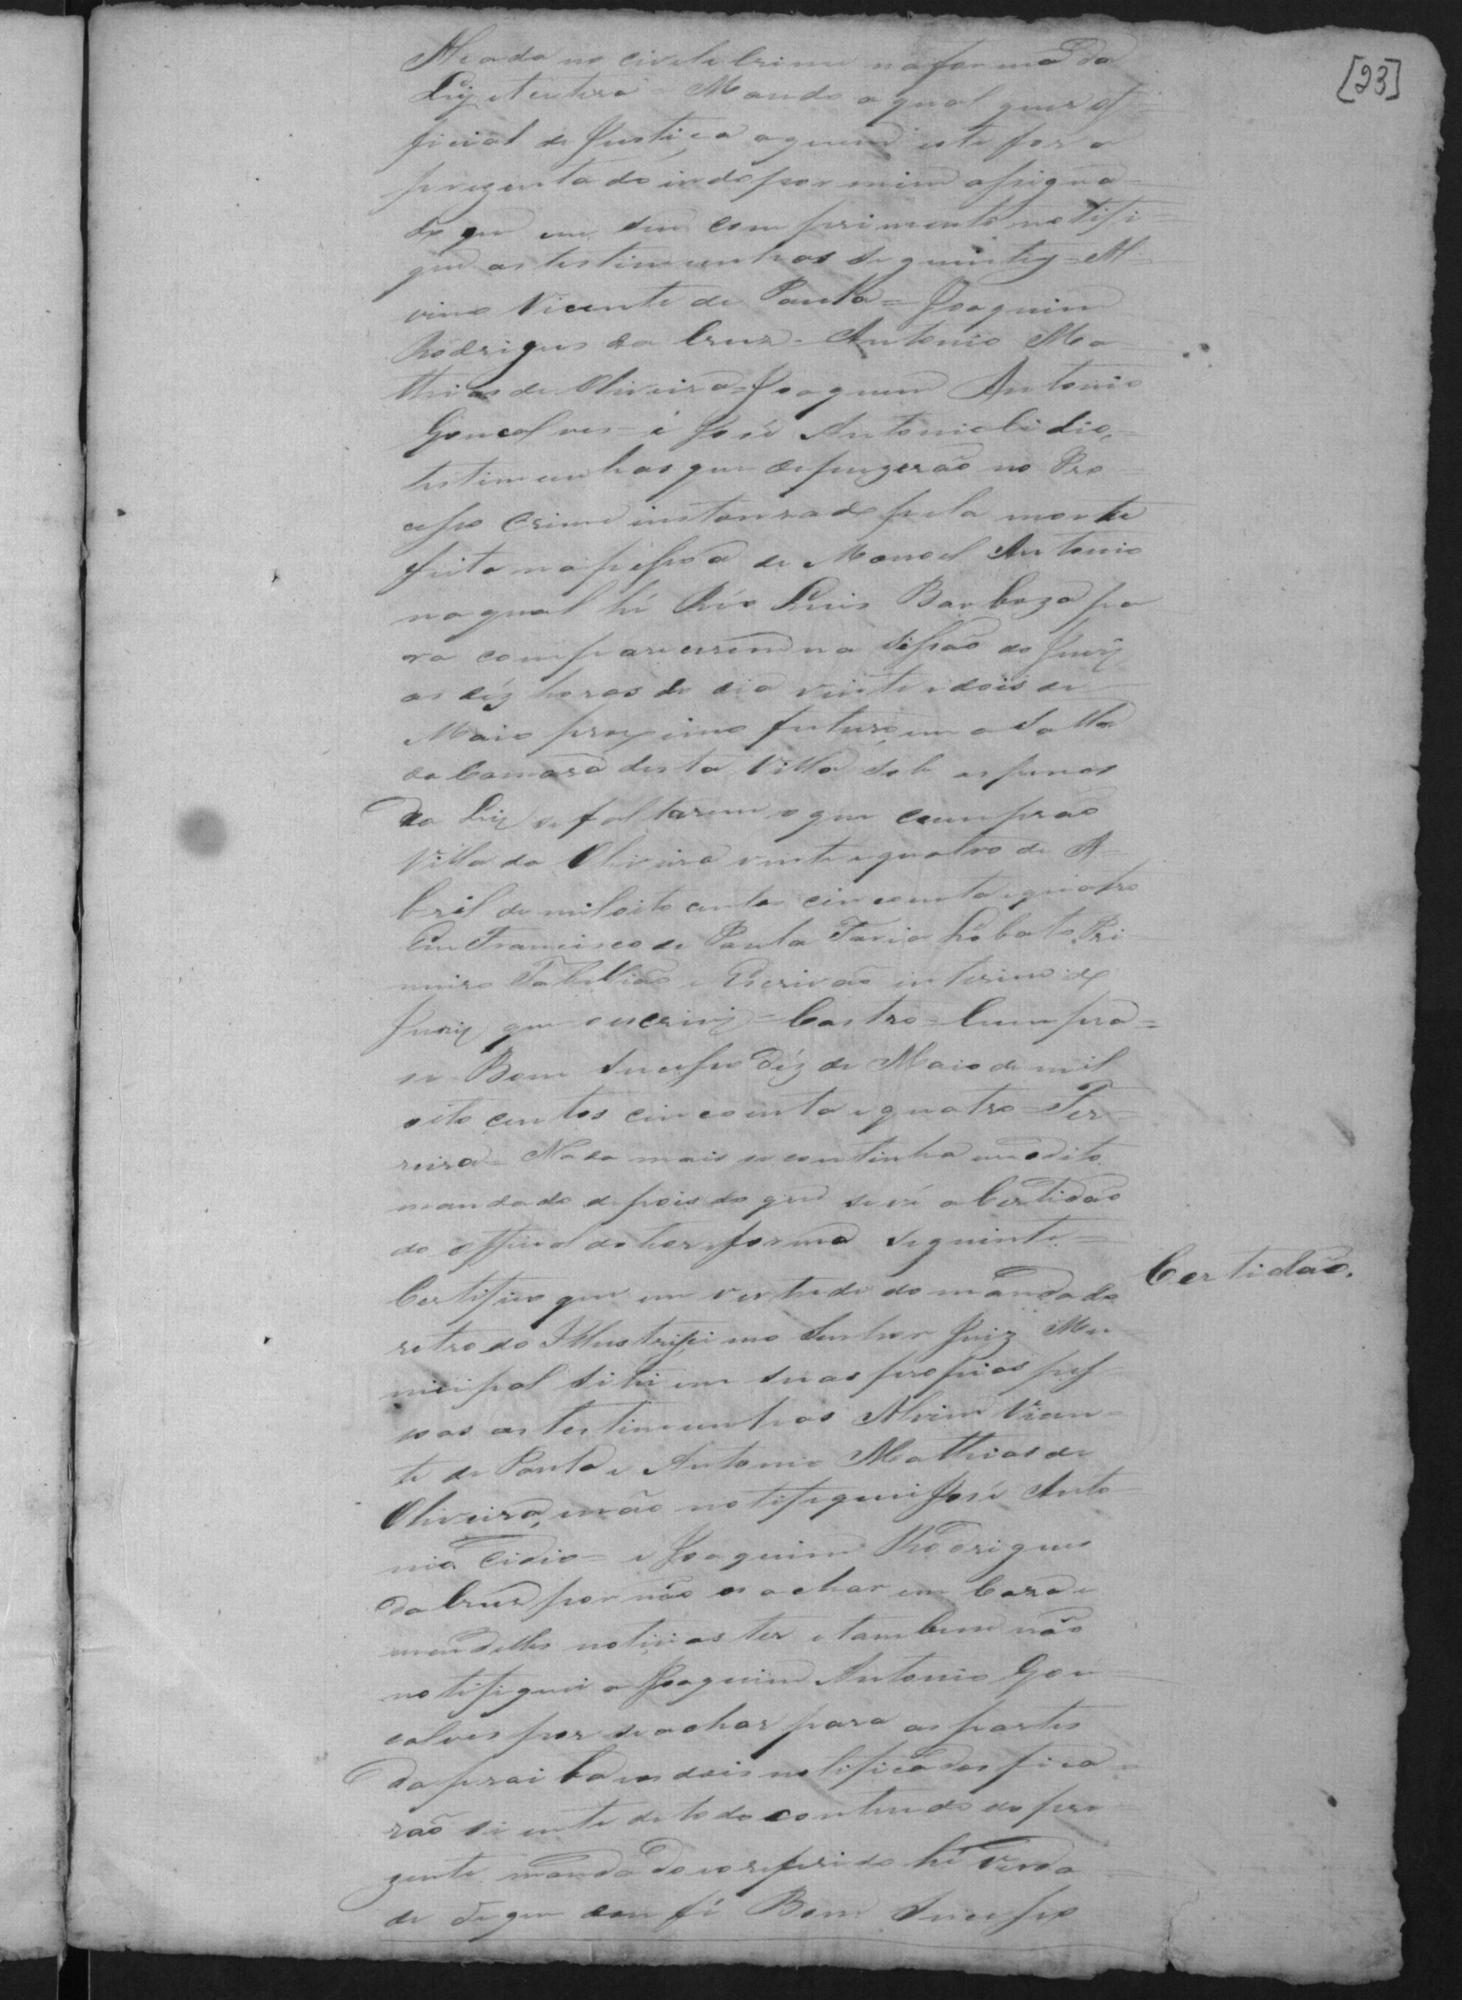 [23]
Alçada no civel e crime na forma da
Ley etcetera = Mando a qual quer of
ficial de Justiça a quem este for a
prezentado indo por mim assigna
do que em seu comprimento notifi
que as testimunhas seguintes = Al
vino Vicente de Paula = Joaquim
Rodrigues da Cruz = Antonio Ma
thias de Oliveira = Joaquim Antonio
Goncalves = e José Antonio Cidio,
testimunhas que depuzerão no Pro
cesso Crime instaurado pela morte
feita na pessoa de Manoel Antonio
na qual hé Réo Luis Barboza pa
ra comparecerem na Sessão do Jury
as déz horas do dia vinte e dois de
Maio proximo futuro em a Salla
da Camara desta Villa sob as penas
da Ley se faltarem o que cumprão
Villa da Oliveira vinte e quatro de A
bril de mil oito centos cincoenta e quatro
Eu Francisco de Paula Faria Lobato Pri
meiro Tabellião e Escrivão interino do
Jury que escrevi = Castro = Cumpra =
se Bom Sucesso déz de Maio de mil
oito centos cincoenta e quatro = Fer
reira = Nada mais se continha em o dito
mandado depois do que se vê a Certidão
do official do theor e forma seguinte =
Certidão.
Certifico que em virtude do mandado
retro do Illustrissimo Senhor Juiz Mu
nicipal citei em suas proprias pes
soas as testimunhas Alvino Vicen
te de Paula e Antonio Mathias de
Oliveira, e não notifiquei José Anto
nio Cidio = e Joaquim Rodrigues
da Cruz por não os achar em Caza e
nem delles noticias ter e tambem não
notifiquei a Joaquim Antonio Gon
calves por se achar para as partes
da os dois notificados fica
rão siente de todo contheudo do pre
zente mandado o referido hé verda
de de que dou fé Bom Sucesso